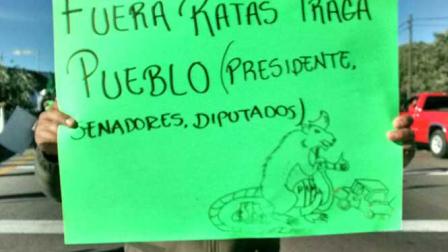 FUERA RATAS TRAGA
PUEBLO (PRESIDENTE,
SENADORES, DIPUTADOS)